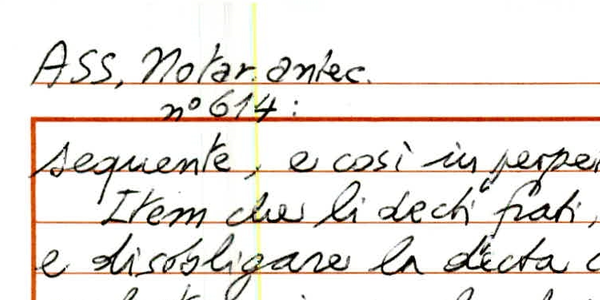 ASS, Notar. antec.
n° 614:
sequente, e così in perpe
Item che li decti frati,
e disobligare la decta c